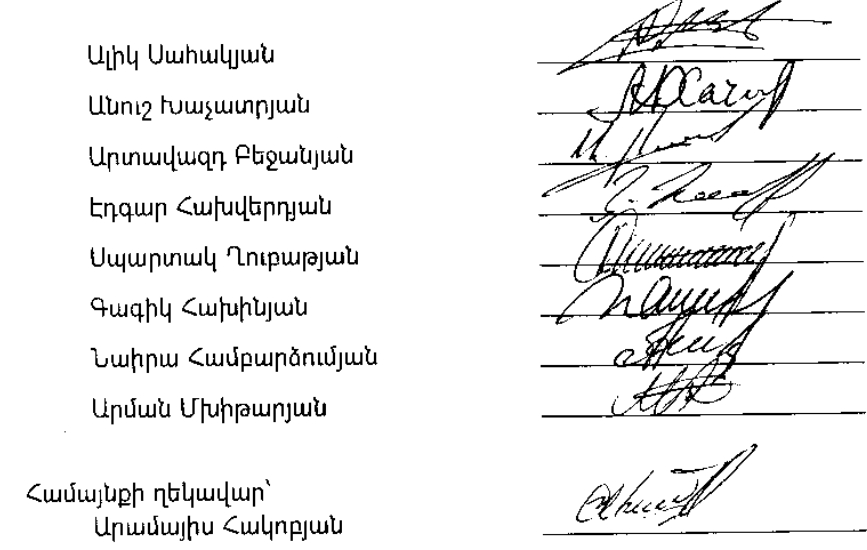 Ալիկ Սահակյան
Անուշ Խաչատրյան
Արտավազդ Բեջանյան
Էդգար Հախվերդյան
Սպարտակ Ղուբաթյան
Գագիկ Հախինյան
Նաիրա Համբարձումյան
Արման Մխիթարյան
Համայնքի ղեկավար՝
Արամայիս Հակոբյան